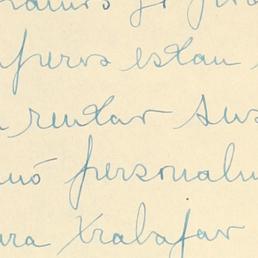 peros estan
rentar sus
nó personalm
ara trabajar